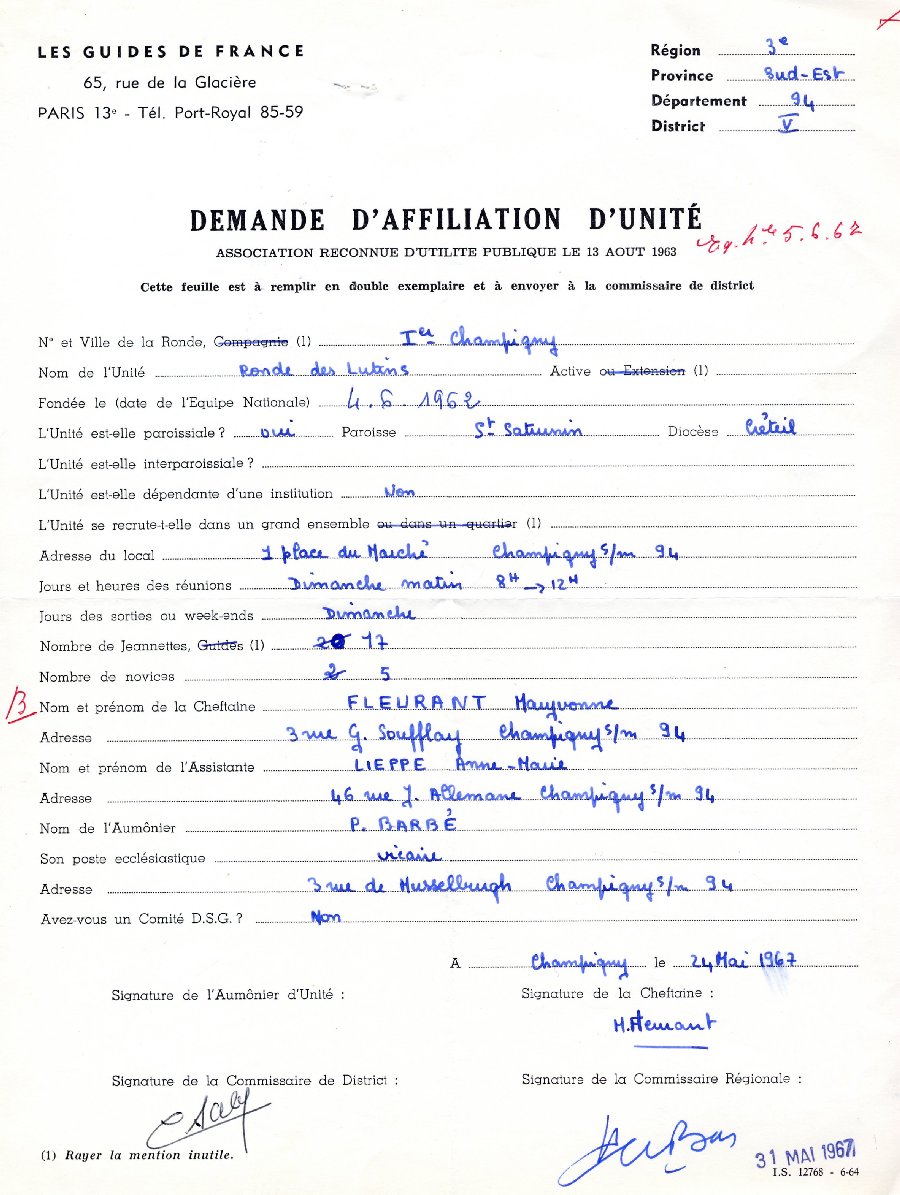 LES GUIDES DE FRANCE
65, rue de la Glacière
PARIS 13e - Tél. Port-Royal 85-59
Région 3e
Province Sud-Est
Département 94
District V
DEMANDE D'AFFILIATION D'UNITÉ
5.6.62
ASSOCIATION RECONNUE D'UTILITE PUBLIQUE LE 13 AOUT 1963
Cette feuille est à remplir en double exemplaire et à envoyer à la commissaire de district
N° et Ville de la Ronde, Compagnie (1) Ier Champigny
Nom de l'Unité Ronde des Lutins Active ou Extension (1)
Fondée le (date de l'Equipe Nationale) 4.6.1962
L'Unité est-elle paroissiale ? oui Paroisse St Saturnin Diocèse Créteil
L'Unité est-elle interparoissiale ?
L'Unité est-elle dépendante d'une institution Non
L'Unité se recrute-t-elle dans un grand ensemble ou dans un quartier (1)
Adresse du local 1 place du Marché Champigny s/m 94
Jours et heures des réunions Dimanche matin 8H → 12H
Jours des sorties ou week-ends Dimanche
Nombre de Jeannettes, Guides (1) 20 17
Nombre de novices 2 5
B
Nom et prénom de la Cheftaine FLEURANT Mauyvonne
Adresse 3 rue G. Soufflay Champigny s/m 94
Nom et prénom de l'Assistante LIEPPE Anne-Marie
Adresse 46 rue J. Allemane Champigny s/m 94
Nom de l'Aumônier P. BARBÉ
Son poste ecclésiastique vicaire
Adresse 3 rue de Musselburgh Champigny s/m 94
Avez-vous un Comité D.S.G. ? Non
A Champigny le 24 Mai 1967
Signature de l'Aumônier d'Unité :
Signature de la Cheftaine :
Signature de la Commissaire de District :
Signature de la Commissaire Régionale :
31 MAI 1967
(1) Rayer la mention inutile.
I.S. 12768 - 6-64